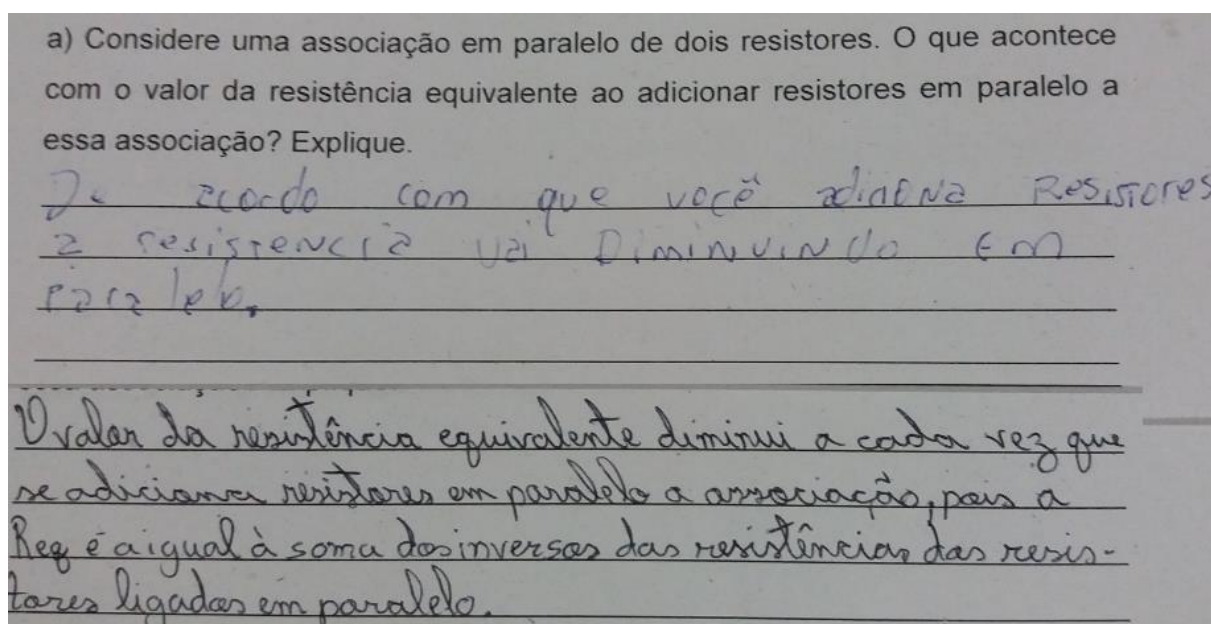 a) Considere uma associação em paralelo de dois resistores. O que acontece
com o valor da resistência equivalente ao adicionar resistores em paralelo a
essa associação? Explique.
De acordo com que você adiciona Resistores
a resistencia vai Diminuindo Em
paralelo.
O valor da resistência equivalente diminui a cada vez que
se adiciona resistores em paralelo a associação, pois a
Req é a igual à soma dos inversos das resistências dos resis-
tores ligados em paralelo.